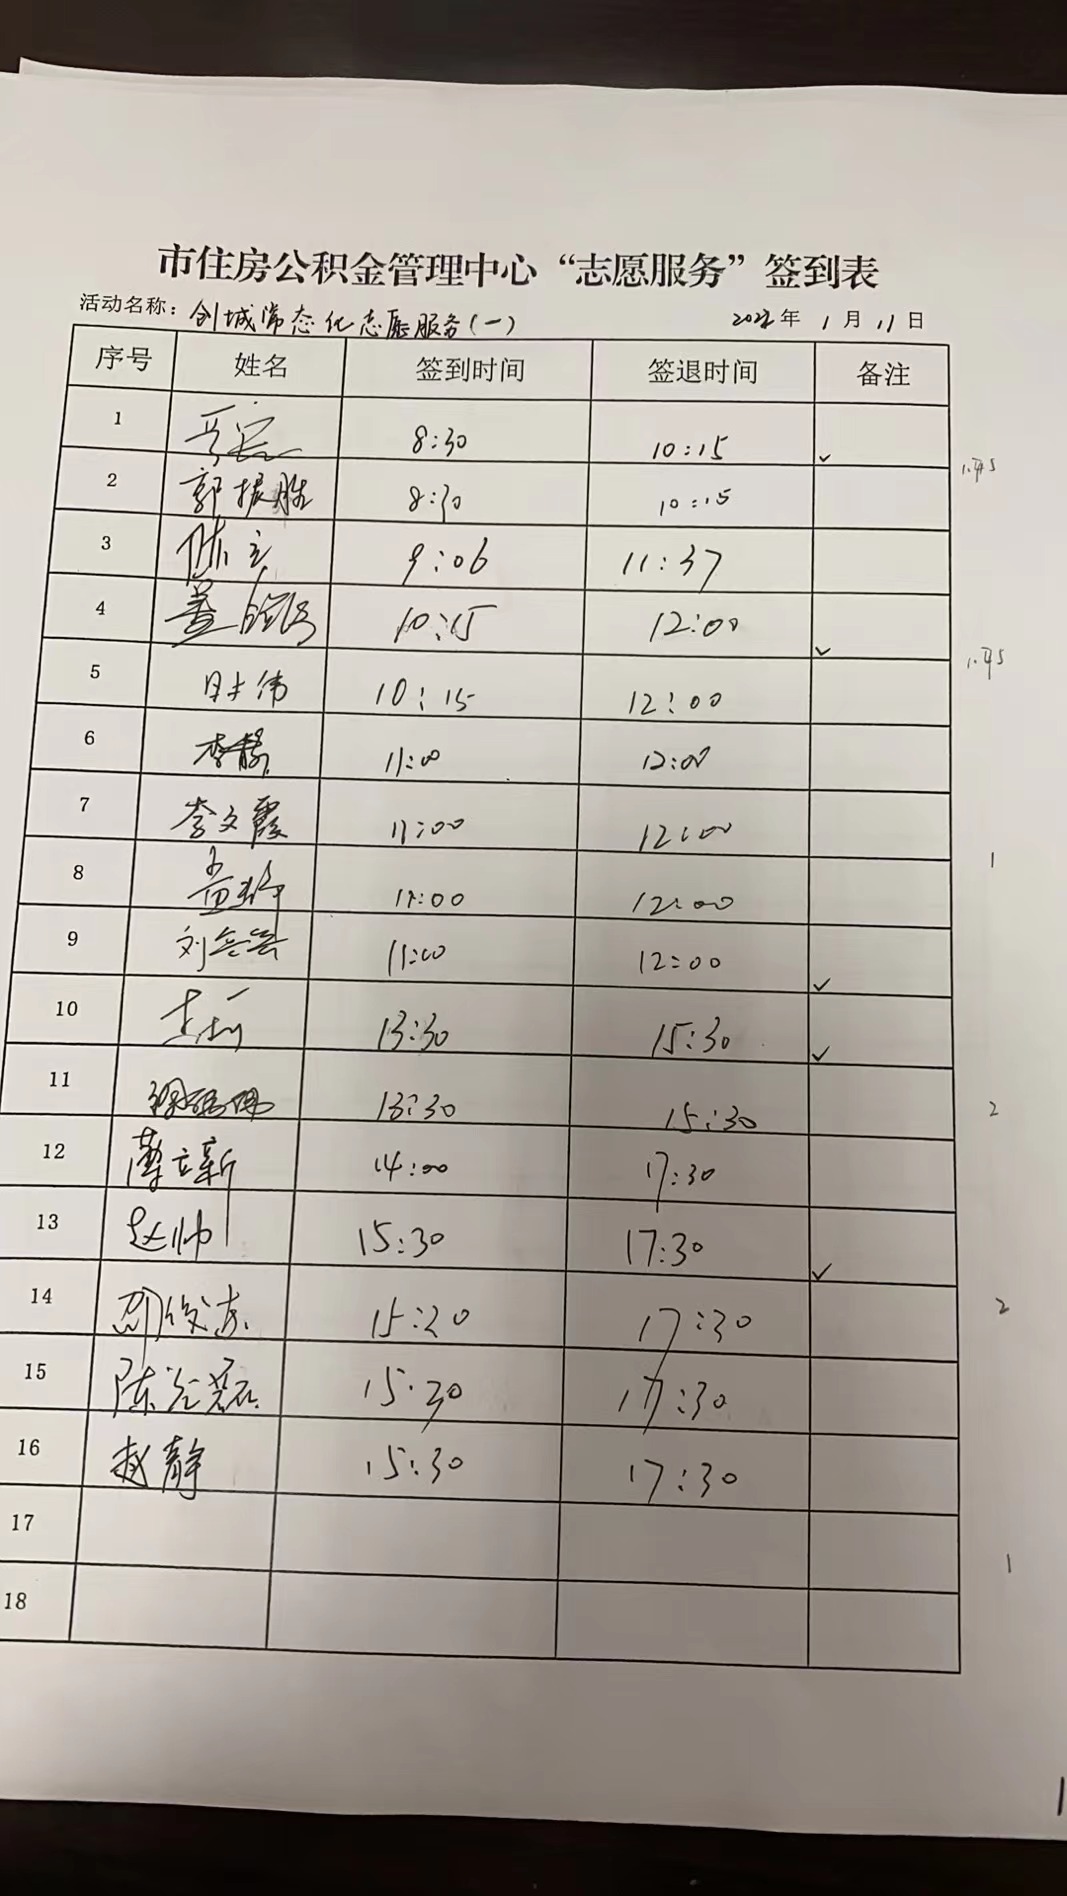 市住房公积金管理中心“志愿服务”签到表
活动名称：创城常态化志愿服务(一) 2022年 1月 11日
序号 姓名 签到时间 签退时间 备注
1 8:30 10:15 ✓
1.45
2 郭振胜 8:30 10:15
3 陈 9:06 11:37
4 10:15 12:00 ✓
1.45
5 伟 10:15 12:00
6 李静 11:00 12:00
7 李文霞 11:00 12:00
1
8 11:00 12:00
9 刘 11:00 12:00 ✓
10 13:30 15:30 ✓
11 13:30 15:30
2
12 薄立新 14:00 17:30
13 赵帅 15:30 17:30 ✓
14 15:20 17:30
2
15 陈 15:30 17:30
16 赵静 15:30 17:30
17
1
18